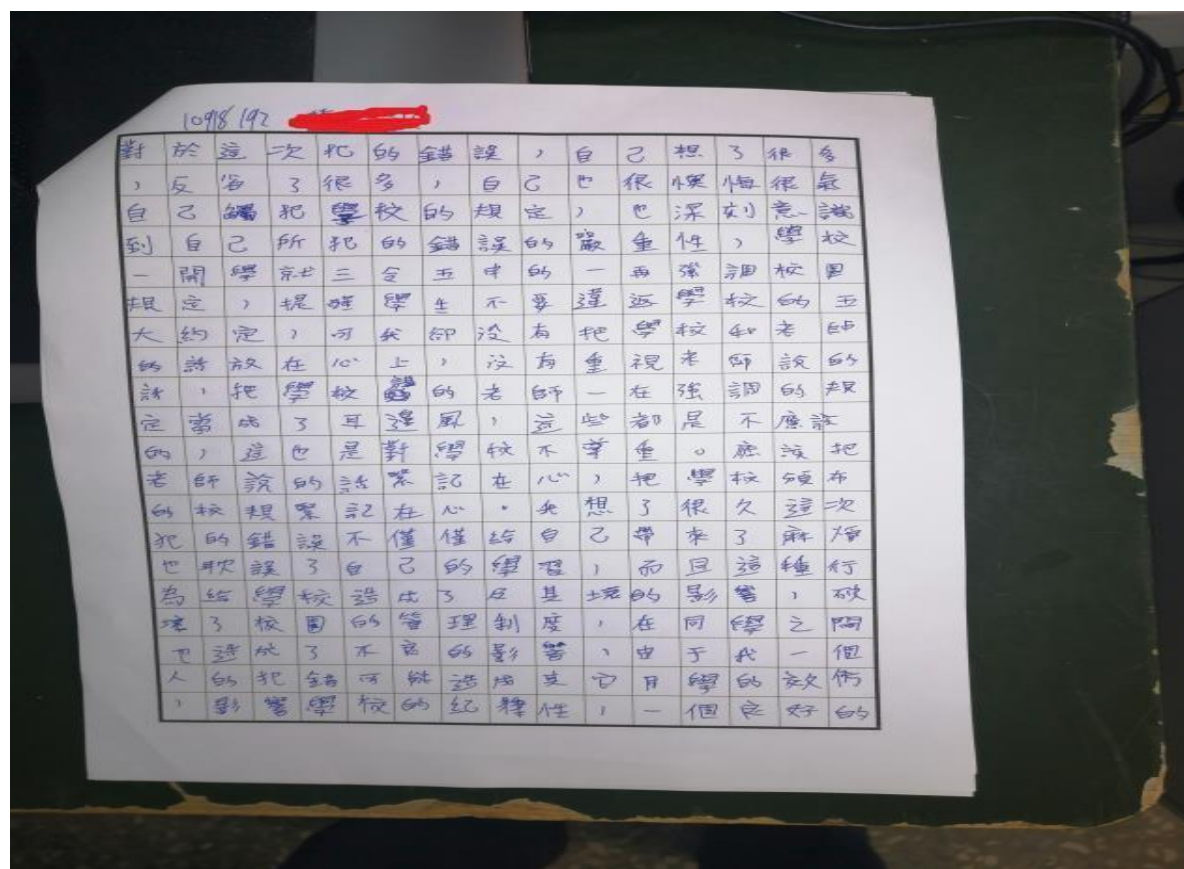 10918192
對於這次犯的錯誤，自己想了很多
，反省了很多，自己也很懊悔很氣
自己觸犯學校的規定，也深刻意識
到自己所犯的錯誤的嚴重性，學校
一開學就三令五申的一再強調校園
規定，提醒學生不要違返學校的五
大約定，可我卻沒有把學校和老師
的話放在心上，沒有重視老師說的
話，把學校的老師一在強調的規
定當成了耳邊風，這些都是不應該
的，這也是對學校不尊重。應該把
老師說的話緊記在心，把學校頒布
的校規緊記在心。我想了很久這次
犯的錯誤不僅僅給自己帶來了麻煩
也耽誤了自己的學習，而且這種行
為給學校造成了及其壞的影響，破
壞了校園的管理制度，在同學之間
也造成了不良的影響，由于我一個
人的犯錯可能造成其它同學的效仿
，影響學校的紀律性，一個良好的